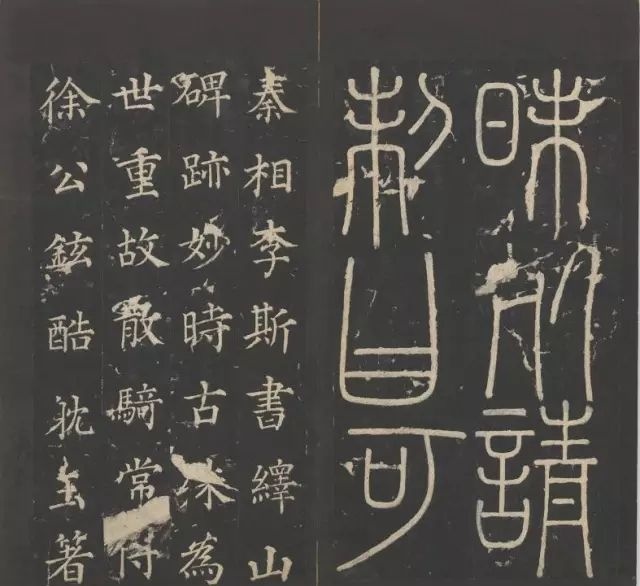 昧死請
制曰可
秦相李斯書繹山
碑跡妙時古殊為
世重故散騎常侍
徐公鉉酷躭玉箸